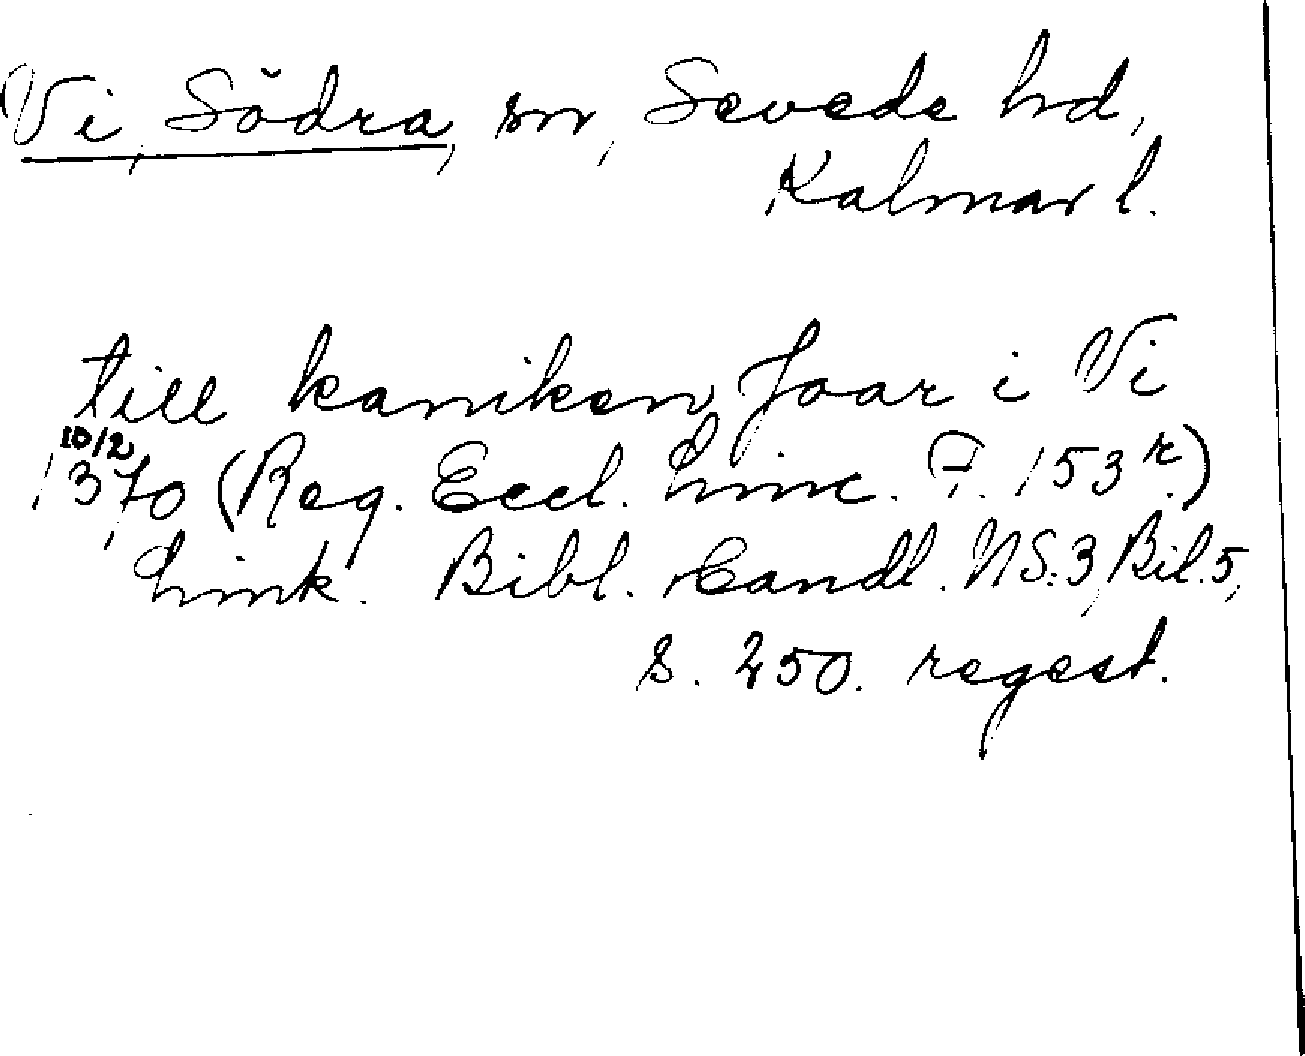 Vi, Södra, sn, Sevede hd,
Kalmar l.
till kaniken Joar i Vi
10/2
1370 (Reg. Eccl. Linc. F. 153r.)
Link. Bibl. Handl. NS. 3, Bil. 5,
s. 250. regest.